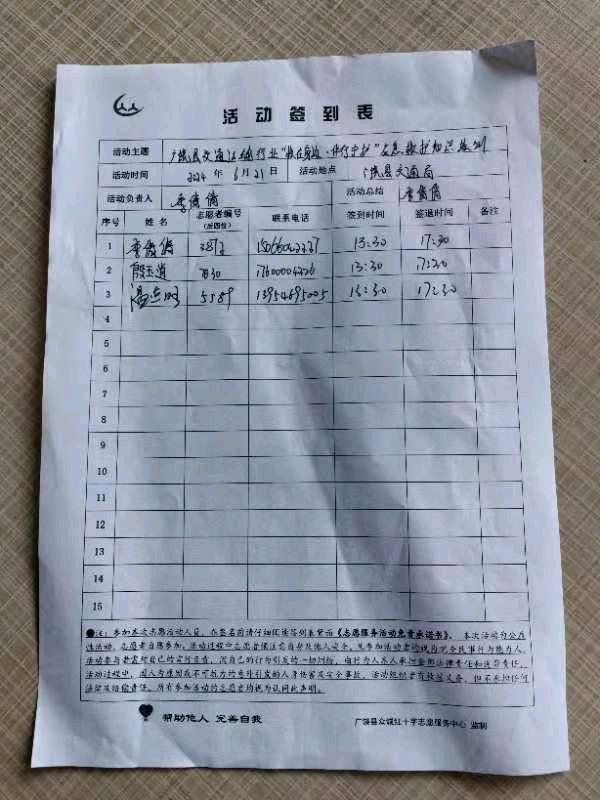 活动签到表
活动主题 广饶县交通运输行业“ 应急救护知识培训
活动时间 2024年6月21日 活动地点 广饶县交通局
活动负责人 李倩倩 活动总结 李倩倩
序号 姓名 志愿者编号(后四位) 联系电话 签到时间 签退时间 备注
1 李倩倩 13:30 17:30
2 7630 13:30 17:30
3 5589 13954695005 13:30 17:30
4
5
6
7
8
9
10
11
12
13
14
15
●注:参加本次志愿活动人员,在签名前请仔细阅读签到表背面《志愿服务活动免责承诺书》。本次活动为公益
性活动,志愿者自愿参加,活动过程中志愿者须注意自身及他人安全。凡参加活动者均视为完全民事行为能力人,
活动参与者需对自己的言行负责,因自己的行为引发的一切纠纷,由行为人本人承担全部法律责任和法律责任。
活动过程中,因人为原因或不可抗力的意外引发的人身伤害或安全事故,活动组织者有救援义务,但不承担任何
法律及赔偿责任。所有参加活动的志愿者均视为认同此声明。
帮助他人 完善自我
广饶县众诚红十字志愿服务中心 监制